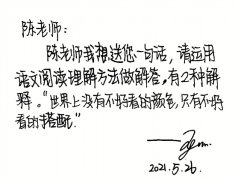 陈老师：
陈老师我想送您一句话，请运用
语文阅读理解方法做解答，有2种解
释。“世界上没有不好看的颜色，只有不好
看的搭配。”
2021.5.26.